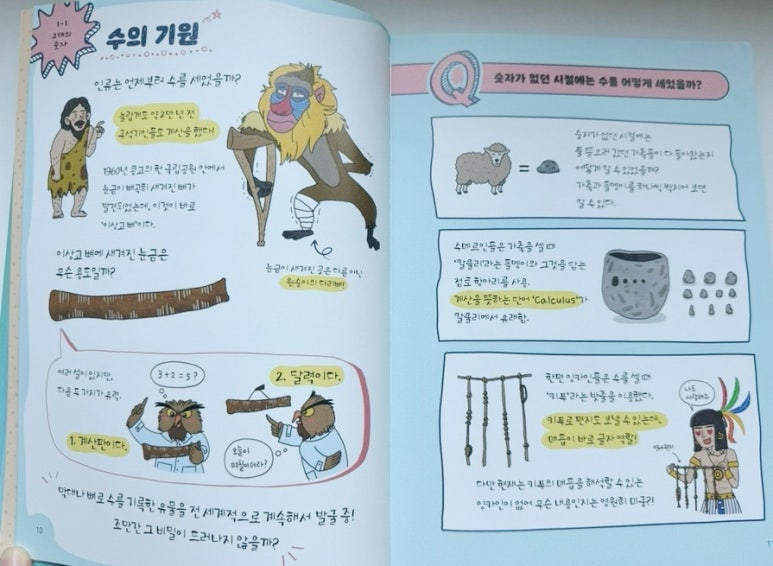 1-1
고대의
숫자
수의 기원
인류는 언제부터 수를 세었을까?
놀랍게도 약 2만 년 전
구석기인들도 계산을 했다!
1960년 콩고의 한 국립공원 안에서
눈금이 빼곡히 새겨진 뼈가
발견되었는데, 이것이 바로
'이상고 뼈'이다.
눈금이 새겨진 곳은 다름 아닌
원숭이의 다리뼈!
이상고 뼈에 새겨진 눈금은
무슨 용도일까?
여러 설이 있지만,
다음 두 가지가 유력.
3+2=5?
1. 계산판이다.
2. 달력이다.
오늘이
며칠이더라?
막대나 뼈로 수를 기록한 유물을 전 세계적으로 계속해서 발굴 중!
조만간 그 비밀이 드러나지 않을까?
10
Q
숫자가 없던 시절에는 수를 어떻게 세었을까?
숫자가 없던 시절에는
풀 뜯으러 갔던 가축들이 다 돌아왔는지
어떻게 알 수 있었을까?
가축과 돌멩이를 하나씩 짝지어 보면
알 수 있다.
=
수메르인들은 가축을 셀 때
'칼쿨리'라는 돌멩이와 그것을 담는
점토 항아리를 사용.
계산을 뜻하는 단어 'Calculus'가
칼쿨리에서 유래함.
한편 잉카인들은 수를 셀 때
'키푸'라는 밧줄을 이용했다.
키푸로 편지도 보낼 수 있는데,
매듭이 바로 글자 역할!
나도
사랑해요
다만 현재는 키푸의 매듭을 해석할 수 있는
잉카인이 없어 무슨 내용인지는 영원히 미궁?!